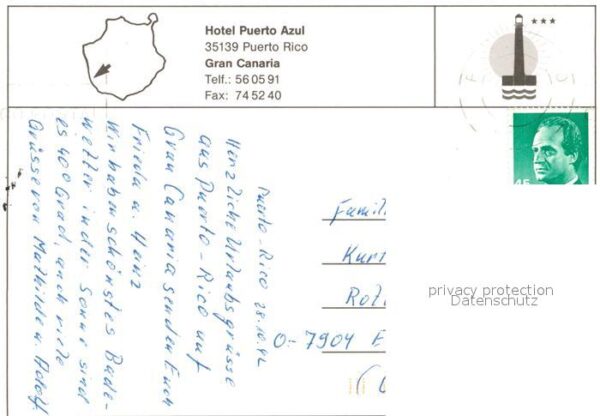 Hotel Puerto Azul
35139 Puerto Rico
Gran Canaria
Telf.: 56 05 91
Fax: 74 52 40
45
Puerto-Rico 28.10.92
Herzliche Urlaubsgrüsse
aus Puerto-Rico auf
Gran Canaria senden Euch
Frieda u. Heinz
Wir haben schönstes Bade-
wetter in der Sonne sind
es 40 Grad, auch viele
Grüsse von Mathilde u. Adolf
Famil
Kurt
O-7904 E
privacy protection
Datenschutz